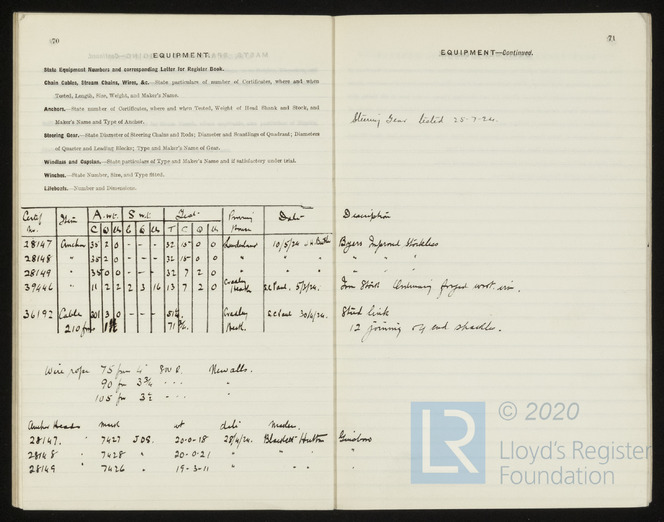 70
EQUIPMENT.
State Equipment Numbers and corresponding Letter for Register Book.
Chain Cables, Stream Chains, Wires, &c.—State particulars of number of Certificates, where and when
Tested, Length, Size, Weight, and Maker's Name.
Anchors.—State number of Certificates, where and when Tested, Weight of Head Shank and Stock, and
Maker's Name and Type of Anchor.
Steering Gear.—State Diameter of Steering Chains and Rods; Diameter and Scantlings of Quadrant; Diameters
of Quarter and Leading Blocks; Type and Maker's Name of Gear.
Windlass and Capstan.—State particulars of Type and Maker's Name and if satisfactory under trial.
Winches.—State Number, Size, and Type fitted.
Lifeboats.—Number and Dimensions.
Certif No. Item A. wt. S wt. Test Proving House Date
C Q lb C Q lb T C Q lb
28147 Anchor 35 2 0 - - - 32 15 0 0 Sunderland 10/5/24
28148 " 35 2 0 - - - 32 15 0 0 "
28149 " 35 0 0 - - - 32 7 2 0 "
39446 " 11 2 2 2 3 16 13 7 2 0 Cradley Heath 5/3/24.
36192 Cable 201 3 0 - - Cradley Heath 30/4/24.
210 fms
Wire ropes 75 fm 4" Newalls.
90 fm 3¾ "
105 fm 3½ "
Anchor Heads mark wt date maker
28147. " 7427 JDS. 20-0-18 28/4/24. Blackett Hutton
28148 " 7428 " 20-0-21 "
28149 " 7426 " 19-3-11 "
71
EQUIPMENT—Continued.
Steering Gear tested 25-7-24.
Description
Byers Improved Stockless
" " "
" " "
Iron Stock Ordinary forged wrot. iron.
Stud link
12 joining & end shackles.
Guisboro
"
"
© 2020
LR
Lloyd's Register
Foundation